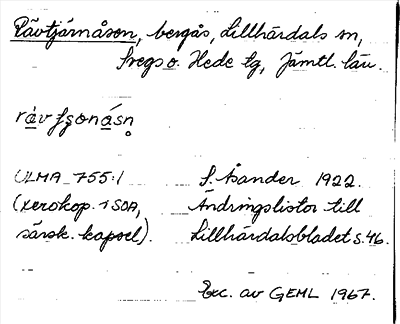 Rävtjärnåsen, bergås, Lillhärdals sn,
Svegs o. Hede tg, Jämtl. län.
rávt̷ʂonásn̥
ULMA 755:1 S. Åsander 1922.
(xerokop. i SOA, Ändringslistor till
särsk. kapsel). Lillhärdalsbladet s. 46.
Exc. av GEML 1967.